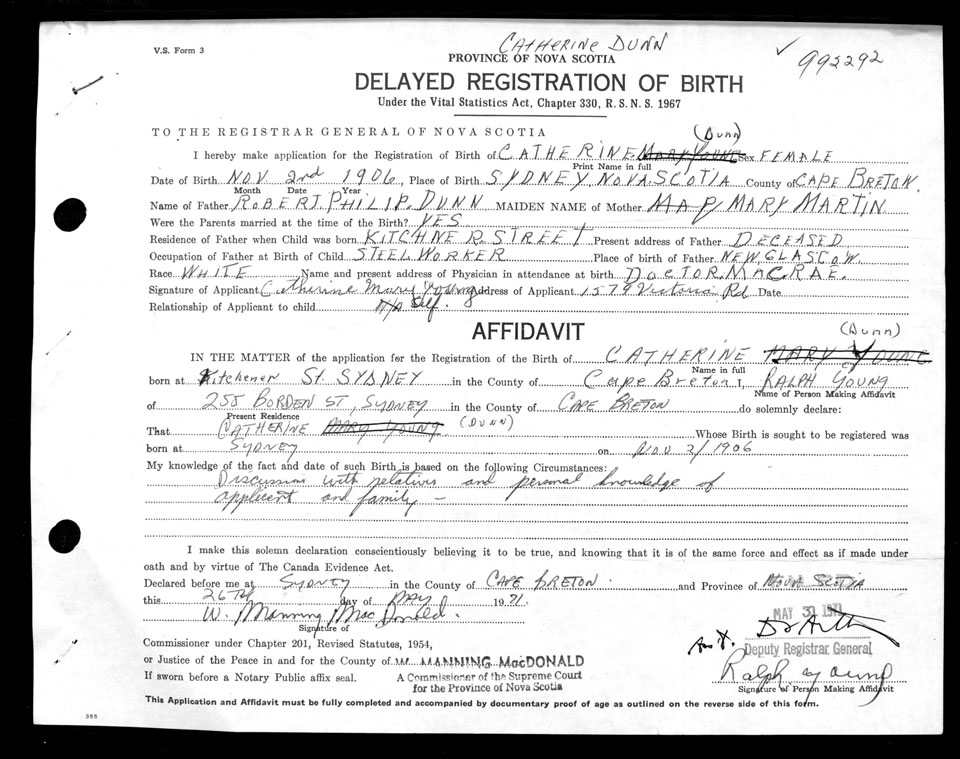 CATHERINE DUNN
V.S. Form 3
PROVINCE OF NOVA SCOTIA
✓ 992292
DELAYED REGISTRATION OF BIRTH
Under the Vital Statistics Act, Chapter 330, R. S. N. S. 1967
TO THE REGISTRAR GENERAL OF NOVA SCOTIA
(Dunn)
I hereby make application for the Registration of Birth of CATHERINE MARY YOUNG Sex FEMALE
Print Name in full
Date of Birth NOV. 2nd 1906, Place of Birth SYDNEY NOVA SCOTIA County of CAPE BRETON.
Month Date Year
Name of Father ROBERT PHILIP DUNN MAIDEN NAME of Mother MAry MARY MARTIN
Were the Parents married at the time of the Birth? YES
Residence of Father when Child was born KITCHNER STREET Present address of Father DECEASED
Occupation of Father at Birth of Child STEEL WORKER Place of birth of Father NEW GLASCOW
Race WHITE Name and present address of Physician in attendance at birth DOCTOR MacRAE.
Signature of Applicant Catherine Mary Young Address of Applicant 1579 Victoria Rd Date
Relationship of Applicant to child N/A Self.
AFFIDAVIT
(Dunn)
IN THE MATTER of the application for the Registration of the Birth of CATHERINE MARY YOUNG
Name in full
born at Kitchener St. SYDNEY in the County of Cape Breton I, RALPH YOUNG
Name of Person Making Affidavit
of 255 BORDEN ST, SYDNEY in the County of CAPE BRETON do solemnly declare:
Present Residence
That CATHERINE MARY YOUNG (DUNN) Whose Birth is sought to be registered was
born at SYDNEY on NOV 2/1906
My knowledge of the fact and date of such Birth is based on the following Circumstances:
Discussion with relatives and personal knowledge of
applicant and family —
I make this solemn declaration conscientiously believing it to be true, and knowing that it is of the same force and effect as if made under
oath and by virtue of The Canada Evidence Act.
Declared before me at SYDNEY in the County of CAPE BRETON. and Province of NOVA SCOTIA
this 26Th day of MAY 1971.
W. Manning MacDonald.
Signature of
MAY 31 1971
Commissioner under Chapter 201, Revised Statutes, 1954,
Deputy Registrar General
or Justice of the Peace in and for the County of W. MANNING MacDONALD
Ralph Young
If sworn before a Notary Public affix seal. A Commissioner of the Supreme Court
for the Province of Nova Scotia
Signature of Person Making Affidavit
This Application and Affidavit must be fully completed and accompanied by documentary proof of age as outlined on the reverse side of this form.
365